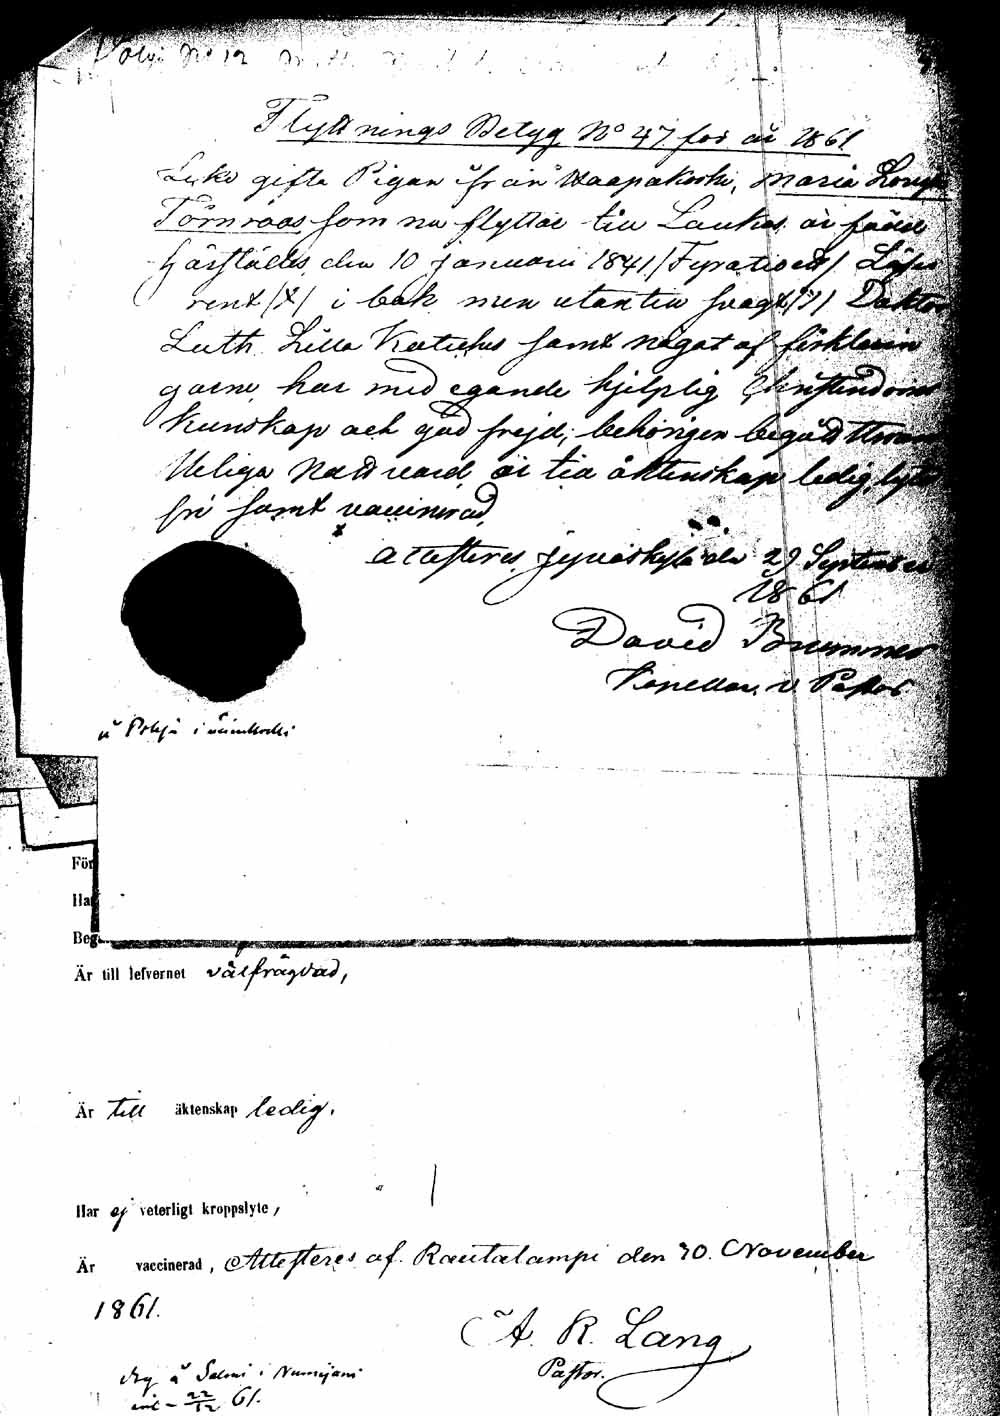 No 12
Flyttnings Betyg No 47 för år 1861
gifta Pigan ifrån Haapakoski, Maria
Törnroos som nu flyttar till Laukas är född
härstädes den 10 Januari 1841 /Fyratioett/
rent /X/ i bok men utantill svagt /7/ Doktor
Luth. Lilla Kateches samt något af förklarin
garne, har med egande hjelplig Christendoms
kunskap och god frejd, behörigen begått
Heliga Nattvard, är till äktenskap ledig, lyte
fri samt vaccinerad,
Attesteres, Jyväskylä den 29 September
1861
David Brummer
v. Pastor
å i
För
Ha
Beg
Är till lefvernet välfrägdad,
Är till äktenskap ledig.
Har ej veterligt kroppslyte,
Är vaccinerad, Attesteres af. Rautalampi den 30. November
1861.
A. R. Lang
Pastor.
å Salmi i
22/12 61.